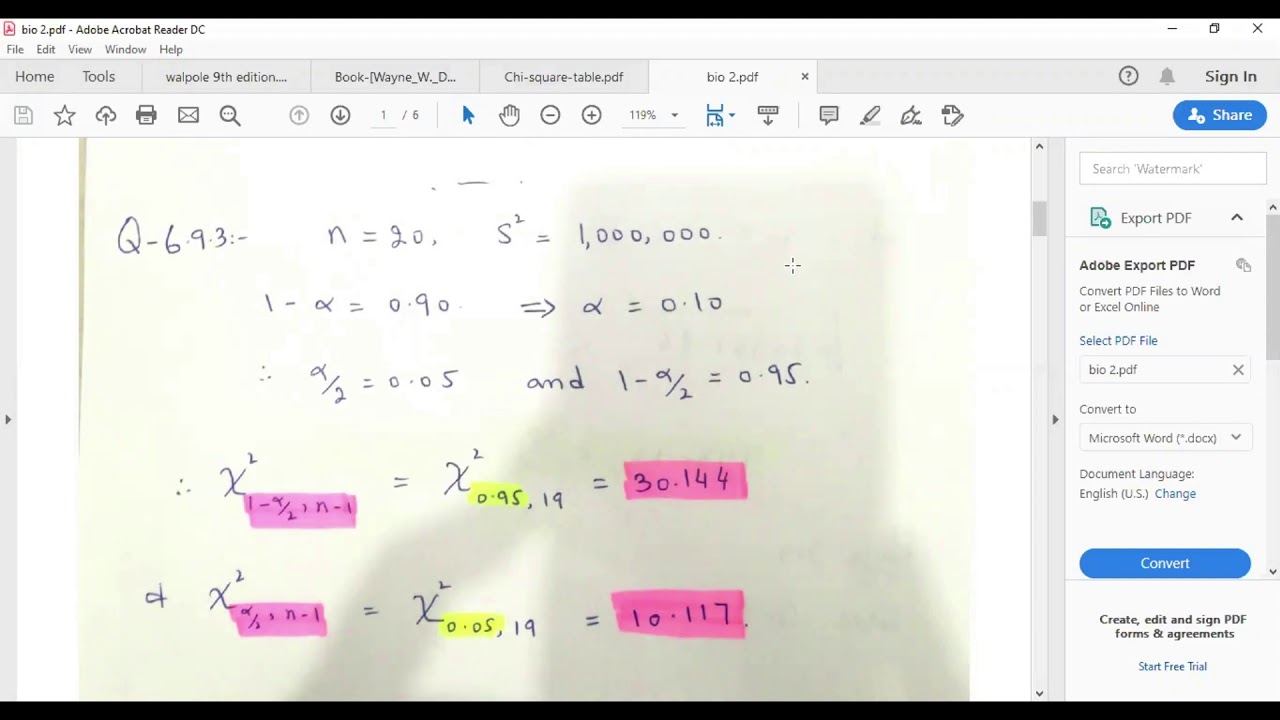 bio 2.pdf - Adobe Acrobat Reader DC
File Edit View Window Help
Home Tools walpole 9th edition.... Book-[Wayne_W._D... Chi-square-table.pdf bio 2.pdf × Sign In
1 / 6 119% Share
Search 'Watermark'
Export PDF
Adobe Export PDF
Convert PDF Files to Word
or Excel Online
Select PDF File
bio 2.pdf
Convert to
Microsoft Word (*.docx)
Document Language:
English (U.S.) Change
Convert
Create, edit and sign PDF
forms & agreements
Start Free Trial
Q-6.9.3:- n = 20, S² = 1,000,000.
1 - α = 0.90. ⇒ α = 0.10
∴ α/2 = 0.05 and 1-α/2 = 0.95.
∴ χ² 1-α/2, n-1 = χ² 0.95, 19 = 30.144
& χ² α/2, n-1 = χ² 0.05, 19 = 10.117.